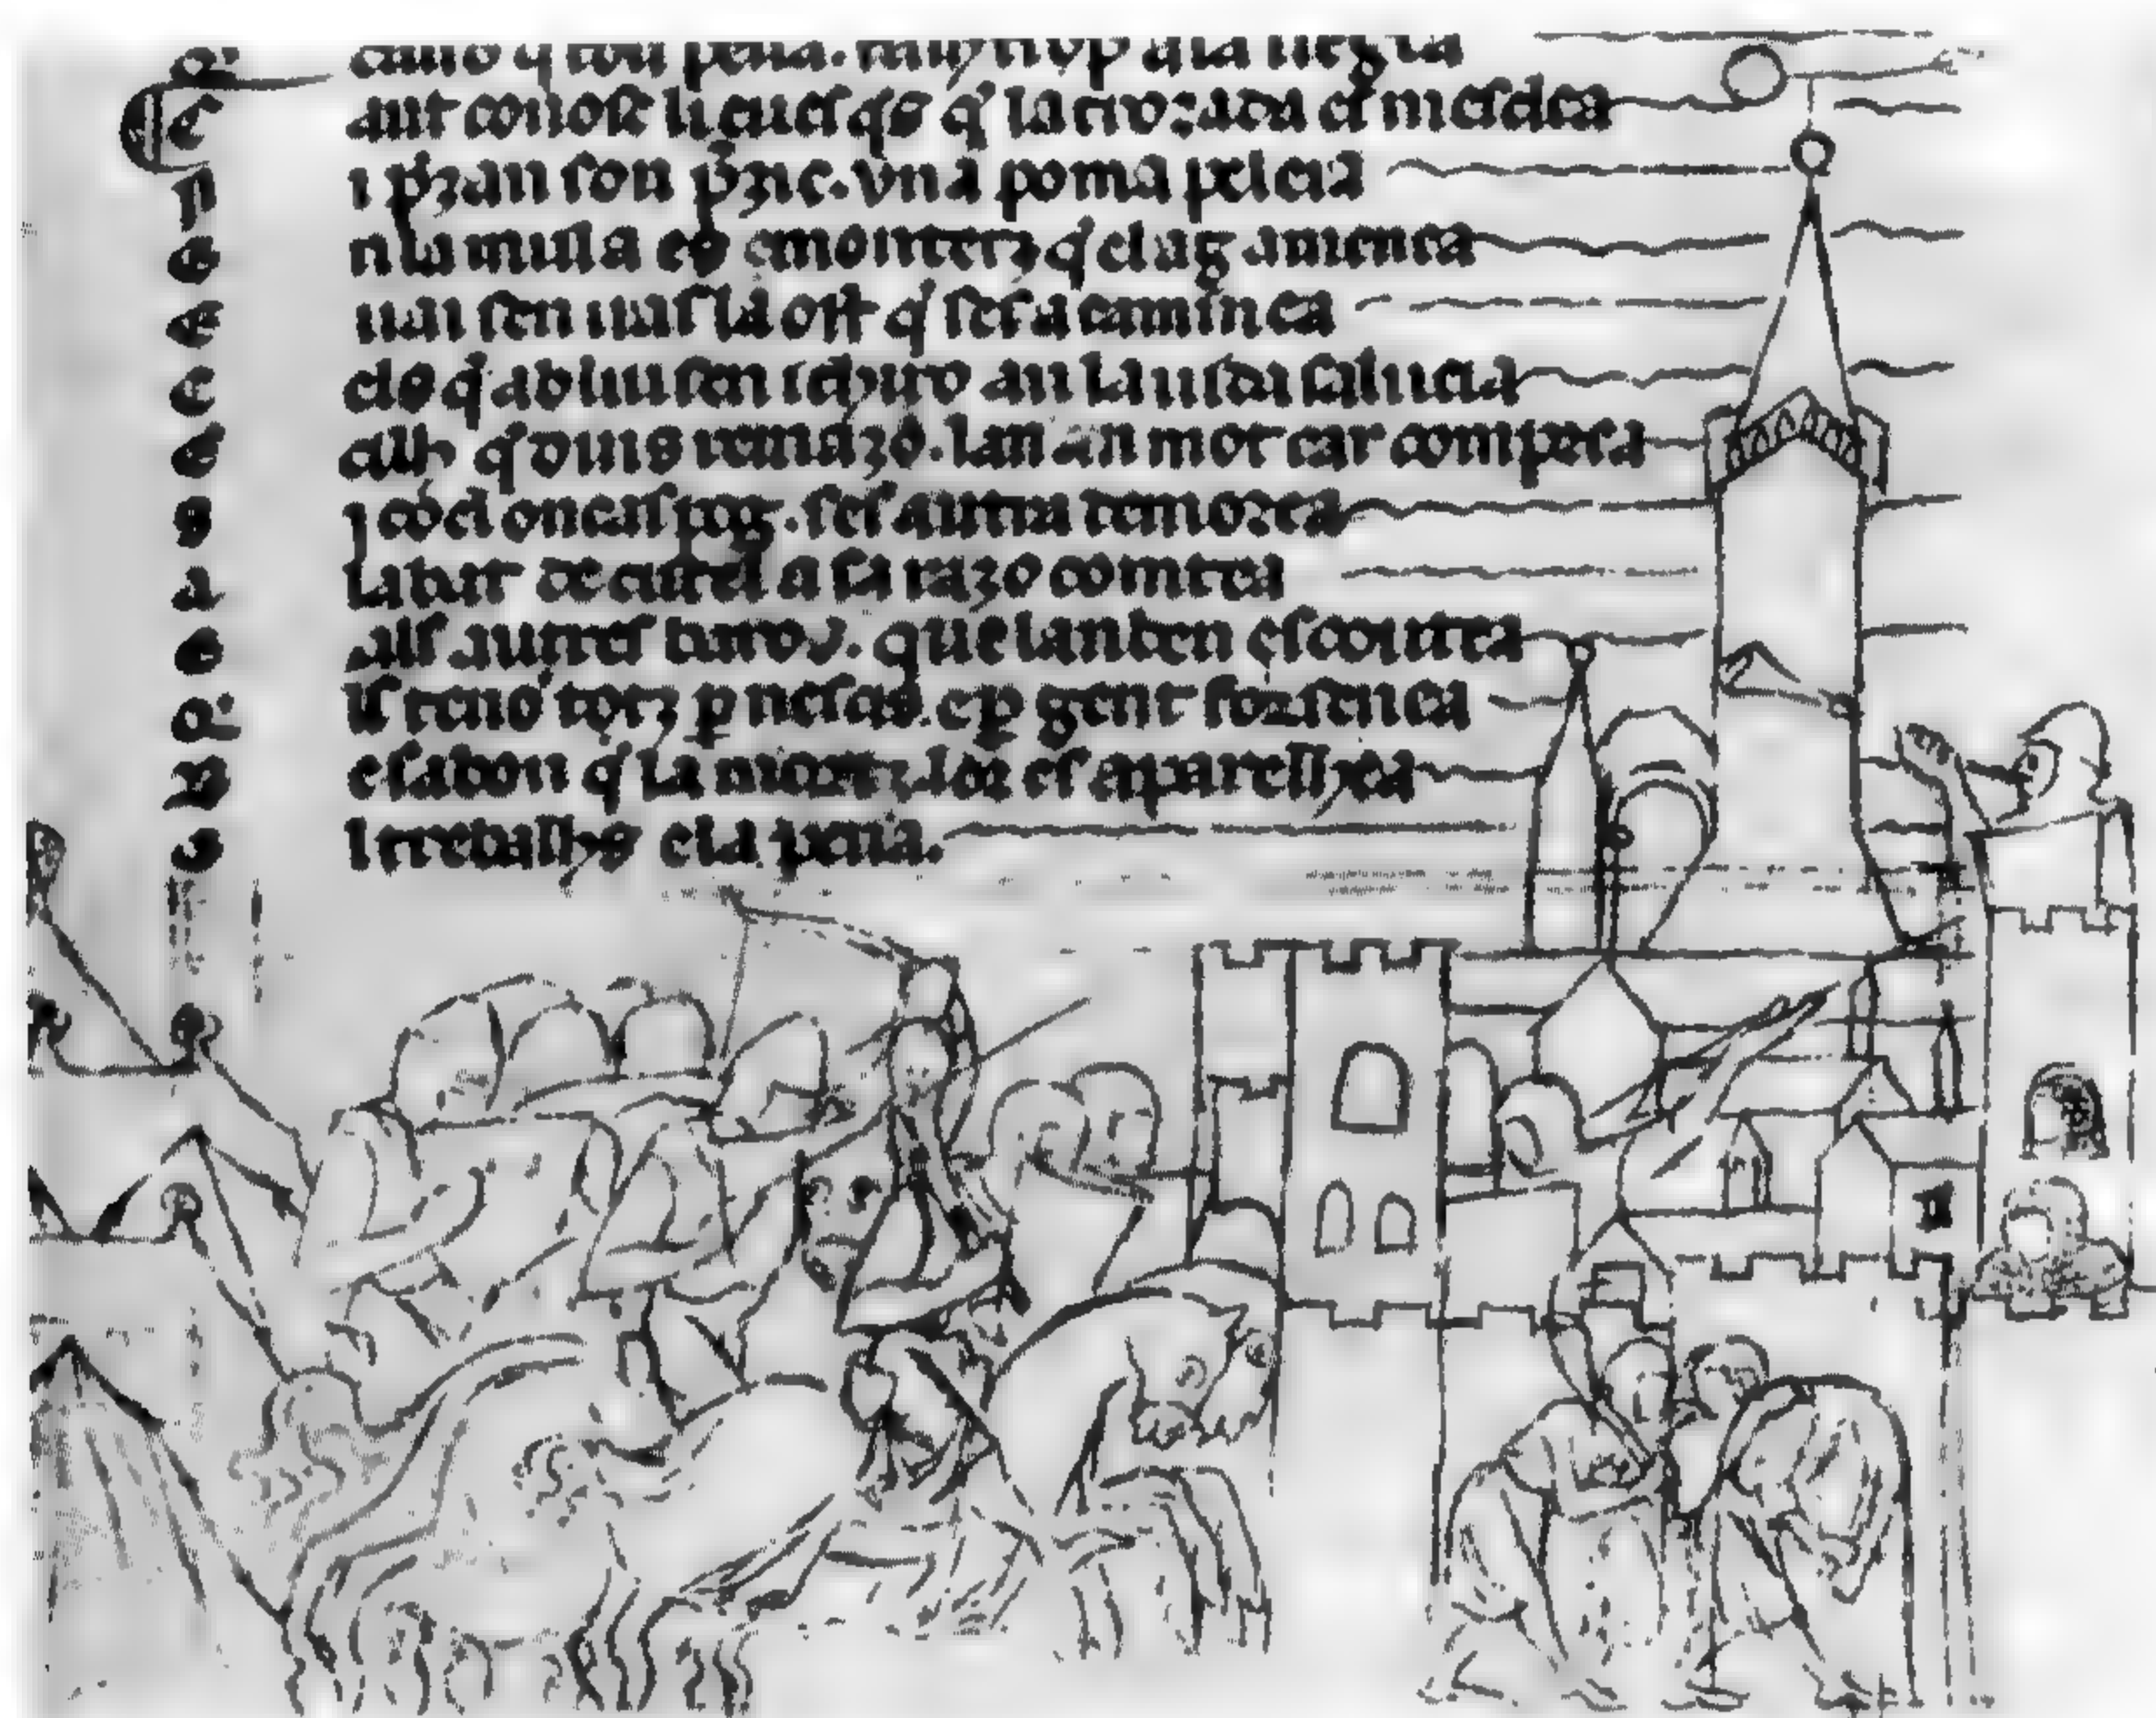 C ant conosc li euesqs q' la crozada es mesclea
n i p'zan son p'zic. vna poma peleia
E n la mula es e montetz q' el ag amenea
E uai sen uas la ost q' ses acaminea
E cels q' ab lui sen ichiro an la uida saluea
E celh q' dins remazo. lan an mot car comprea
S i co el pog. ses autra demorea
A labat de cistel a sa razo comtea
E als autres baros. que lan ben escoutea
Q' ls teno totz p nescis. e p gent forsenea
B e sabon q' la mortz lor es aparelhea
E l trebalhs e la pena.